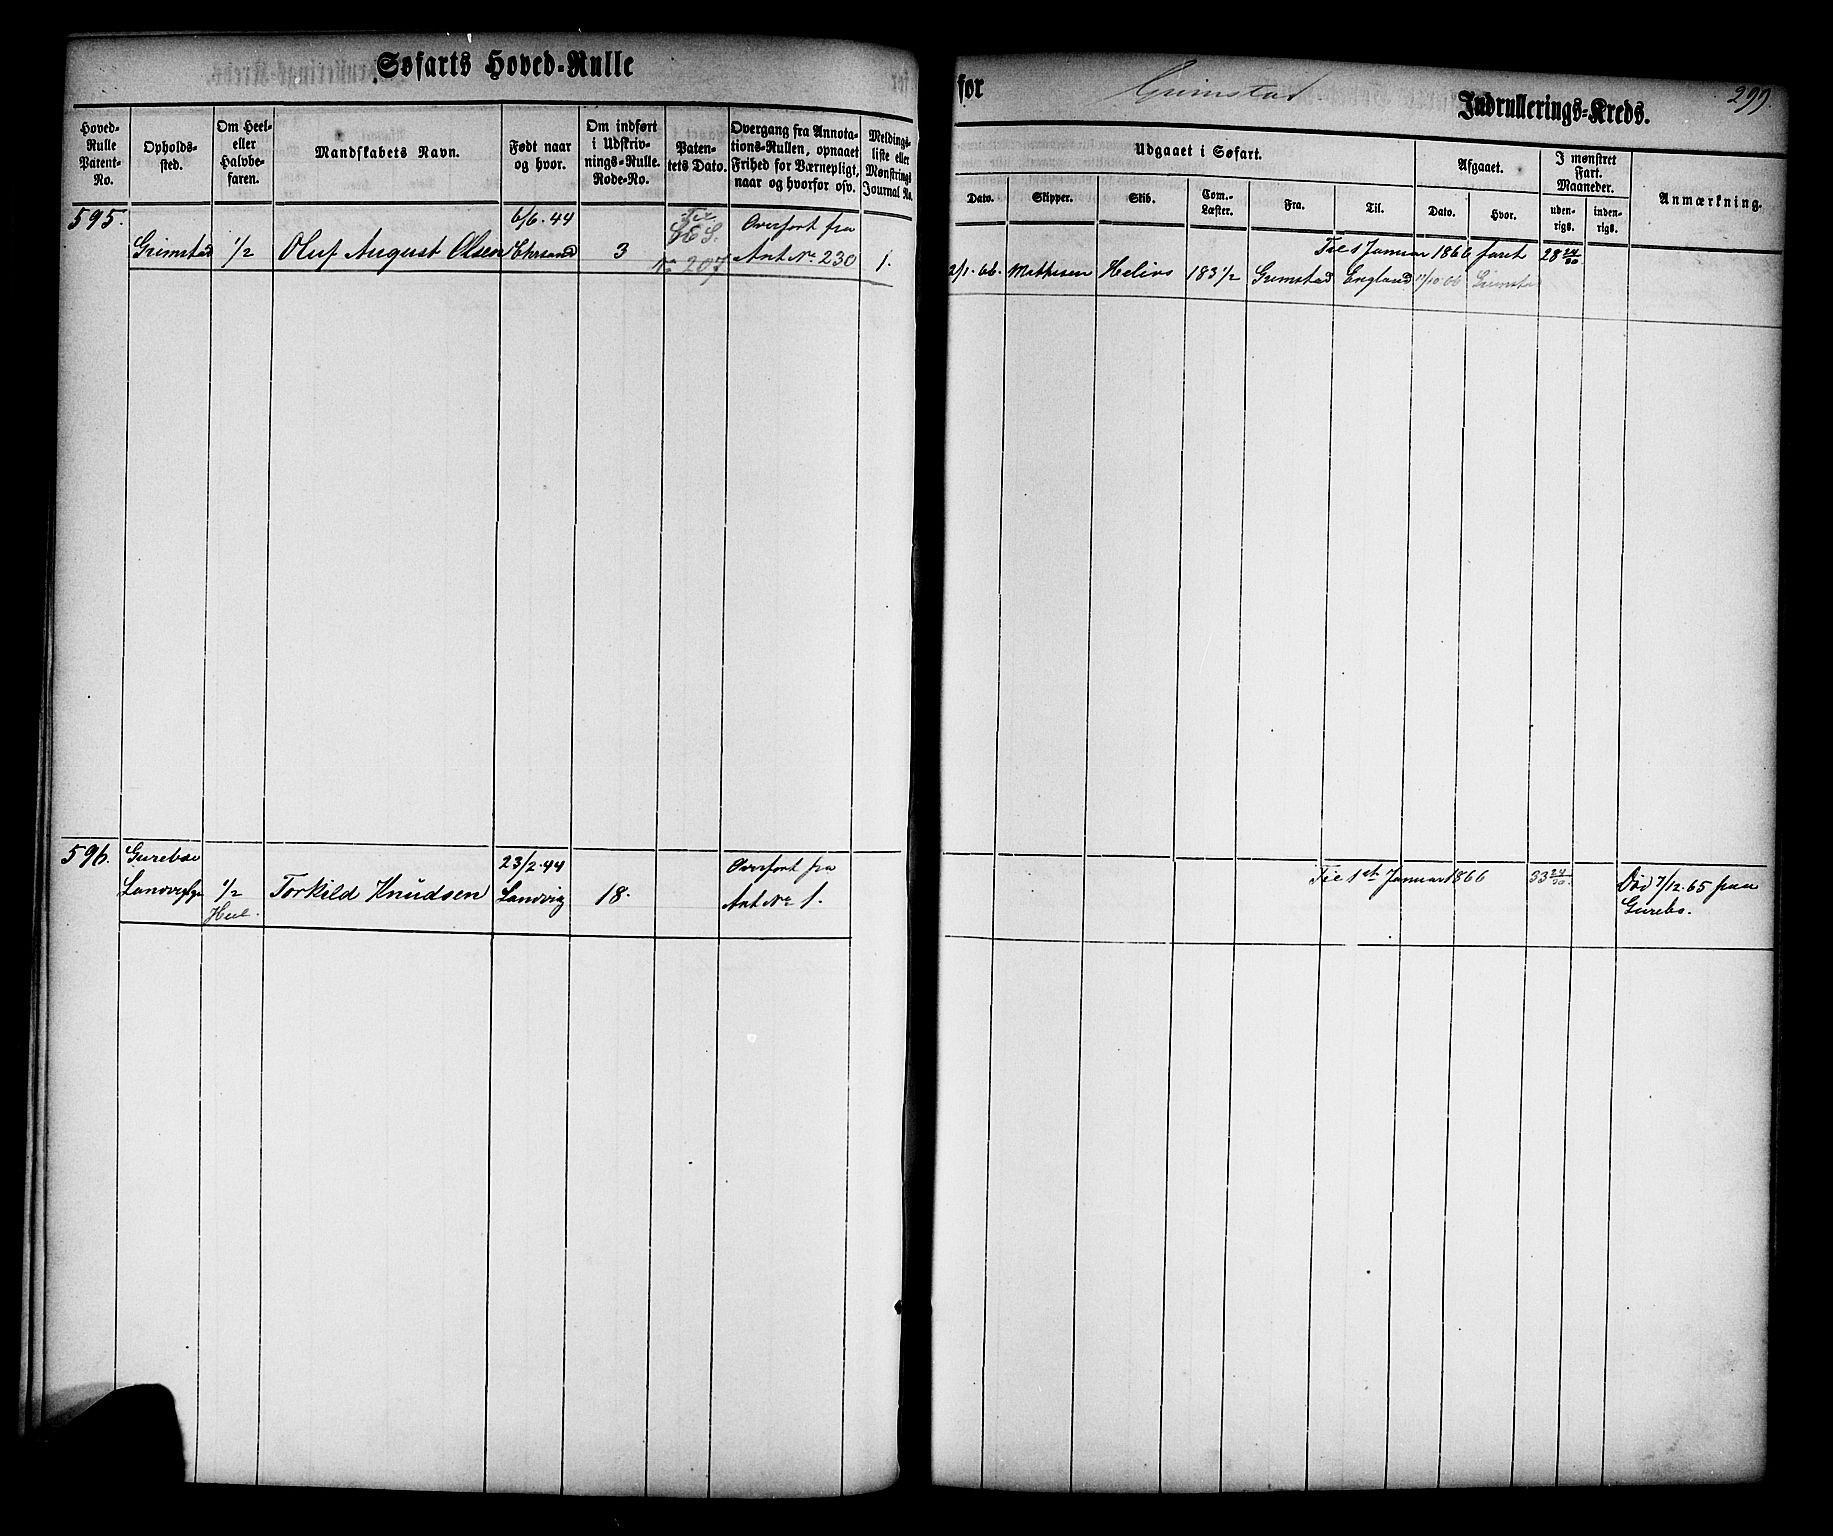 Søfarts Hoved-Rulle
for Grimstad Indrullerings-Kreds.
299.
Hoved-Rulle Patent-No.
Opholds-sted.
Om Heel- eller Halvbe-faren.
Mandskabets Navn.
Født naar og hvor.
Om indført i Udskriv-nings-Rulle. Rode-No.
Paten-tets Dato.
Overgang fra Annota-tions-Rullen, opnaaet Frihed for Værnepligt, naar og hvorfor osv.
Meldings-liste eller Mønstrings Journal No.
Udgaaet i Søfart.
Dato.
Skipper.
Skib.
Com.-Læster.
Fra.
Til.
Afgaaet.
Dato.
Hvor.
I mønstret Fart. Maaneder.
uden-rigs.
inden-rigs.
Anmærkning.
595.
6/6.44
Overført fra
Grimstad 1/2 Oluf August Olsen Chrsand 3 No 207 Ant No 230 1.
Til 1 Januar 1866 faret 28 24/30
2/1.66. Mathesen Helios 183 1/2 Grimstad England 11/10 66 Grimstad
596.
Gurebo
23/2.44
Overført fra
1/2 Torkild Knudsen Landvig 18. Ant No 1.
Heel.
Til 1st Januar 1866 33 24/30.
Død 7/12.65 paa
Gurebo.